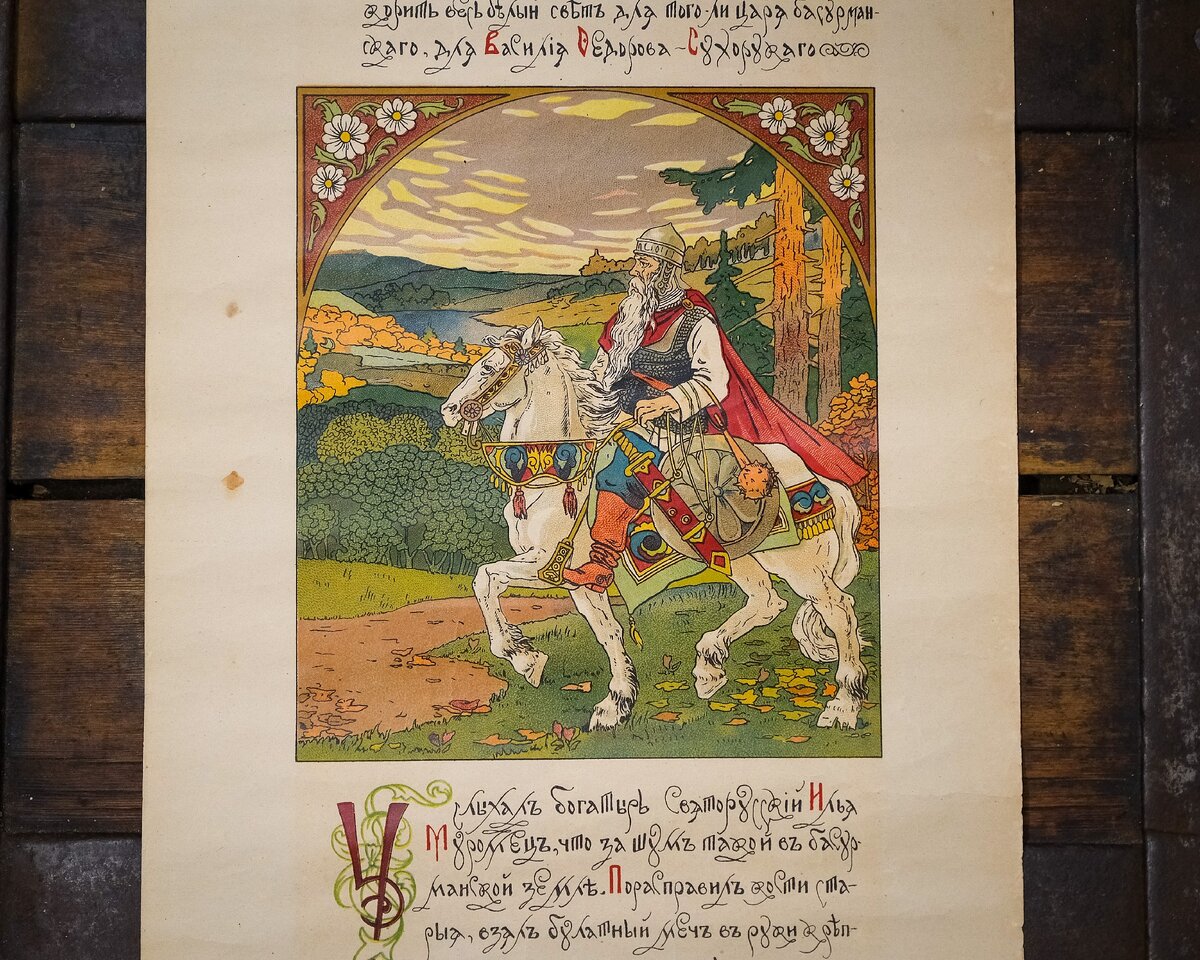 корить весь бѣлый свѣтъ для того-ли царя басурман-
скаго, для Василія Ѳедорова-Сухорукаго
Услыхалъ богатырь Святорусскій Илья
Муромецъ, что за шумъ такой въ басур-
манской землѣ. Порасправилъ кости ста-
рыя, взялъ булатный мечъ въ руки крѣп-